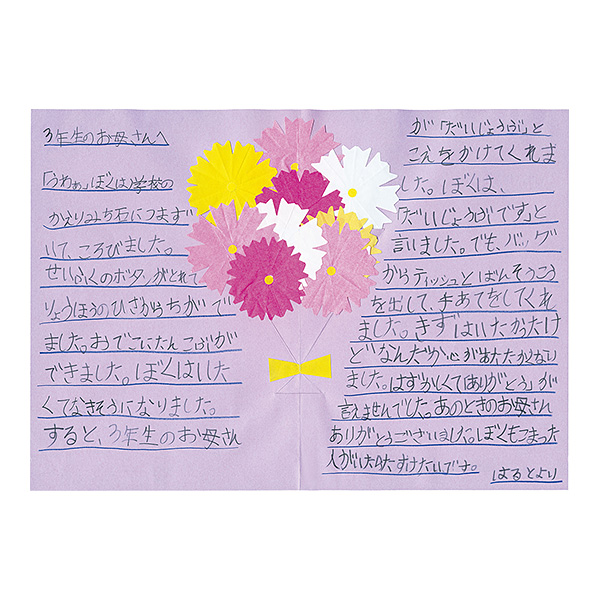 3年生のお母さんへ
「うわぁ」ぼくは、学校の
かえりみち石につまず
いて、ころびました。
せいふくのボタンがとれて
りょうほうのひざからちがで
ました。おでこにたんこぶが
できました。ぼくはいた
くてなきそうになりました。
すると、3年生のお母さん
が「だいじょうぶ」と
こえをかけてくれま
した。ぼくは、
「だいじょうぶです」と
言いました。でも、バッグ
からティッシュとばんそうこう
を出して、手あてをしてくれ
ました。きずはいたかったけ
どなんだか心があたたかくなり
ました。はずかしくて「ありがとう」が
言えませんでした。あのときのお母さん
ありがとうございました。ぼくもこまった
人がいたらたすけたいです。
はるとより